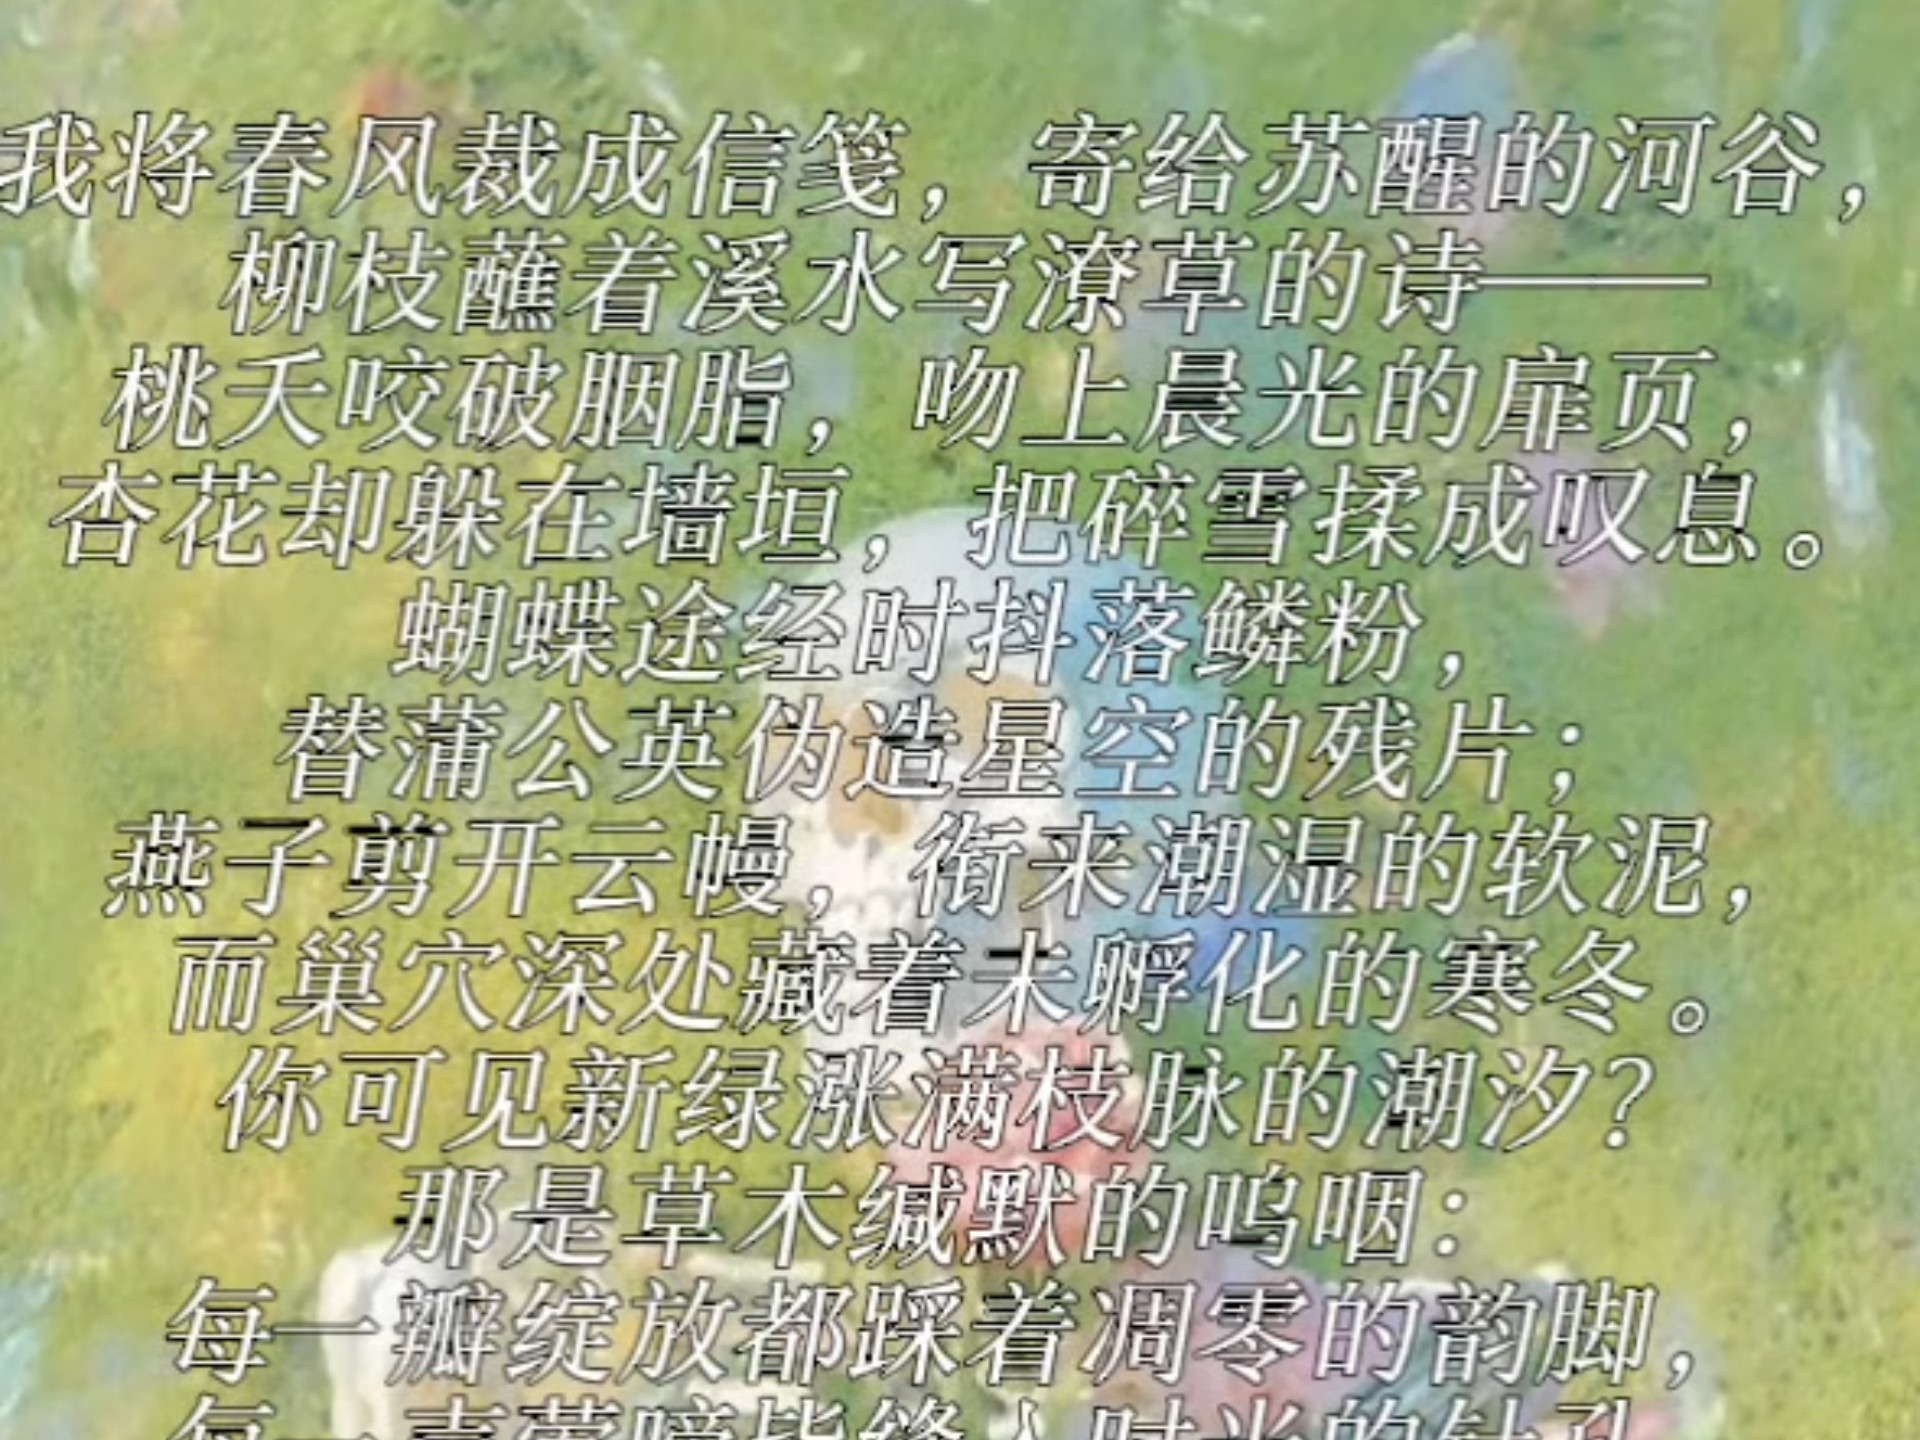 我将春风裁成信笺，寄给苏醒的河谷，
柳枝蘸着溪水写潦草的诗——
桃夭咬破胭脂，吻上晨光的扉页，
杏花却躲在墙垣，把碎雪揉成叹息。
蝴蝶途经时抖落鳞粉，
替蒲公英伪造星空的残片；
燕子剪开云幔，衔来潮湿的软泥，
而巢穴深处藏着未孵化的寒冬。
你可见新绿涨满枝脉的潮汐？
那是草木缄默的呜咽：
每一瓣绽放都踩着凋零的韵脚，
每一声莺啼皆缝入时光的针孔